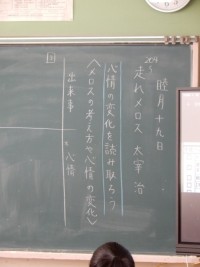 睦月十九日
走れメロス 太宰 治
心情の変化を読み取ろう
〈メロスの考え方や心情の変化〉
出来事 心情